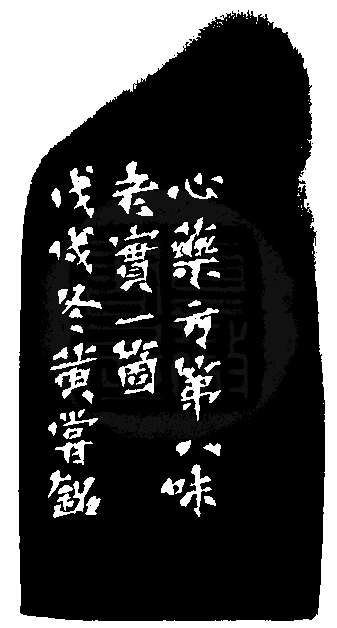 心藥方第八味
老實一箇
戊戌冬黃嘗銘